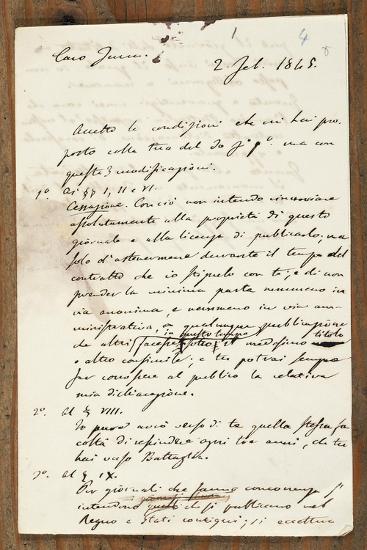 4
2 Feb. 1845.
Caro
Accetto le condizioni che mi hai pro
posto colla tua del 30 ma con
queste 3 modificazioni.
1º. Ai §§ I, II e VI.
Cessazione. Con ciò non intendo rinunziare
assolutamente alla proprietà di questo
giornale e alla licenza di publicarlo, ma
solo d'astenermene durante il tempo del
contratto che io stipulo con te; e di non
prender la minima parte nemmeno in
via anonima e nemmeno in via am
ministrativa, o in qualunque publicazione
da altri col medesimo titolo
o altro consimile; e tu potrai sempre
far conoscere al publico la relativa
mia dichiarazione.
2º. Al § VIII.
Io pure avrò verso di te quella stessa fa
coltà di rescindere ogni tre anni, che tu
hai verso Battaglia.
3º. Al § IX.
Per giornali che fanno concorrenza
intendono quelli che si publicano nel
Regno e Stati contigui; si eccettua